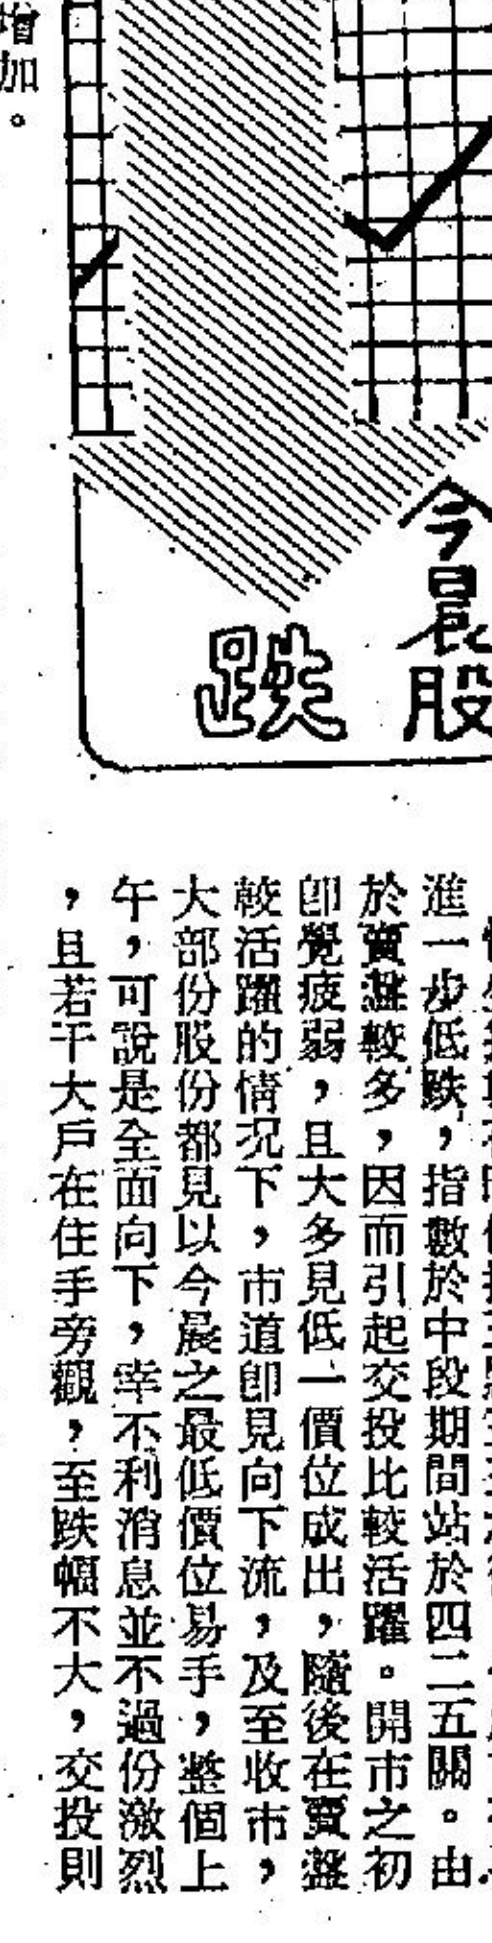 今晨股
跌
進一步低跌，指數於中段期間站於四二五關。由
於賣盤較多，因而引起交投比較活躍。開市之初
卽覺疲弱，且大多見低一價位成出，隨後在賣盤
較活躍的情況下，市道卽見向下流，及至收市，
大部份股份都見以今晨之最低價位易手，整個上
午，可說是全面向下，幸不利消息並不過份激烈
，且若干大戶在住手旁觀，至跌幅不大，交投則
增加。